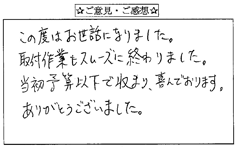 ☆ご意見・ご感想☆
この度はお世話になりました。
取付作業もスムーズに終わりました。
当初予算以下で収まり、喜んでおります。
ありがとうございました。